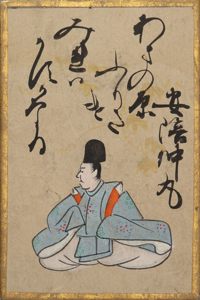 安陪仲丸
あまの原
ふりさけ
みれは
かすかなる